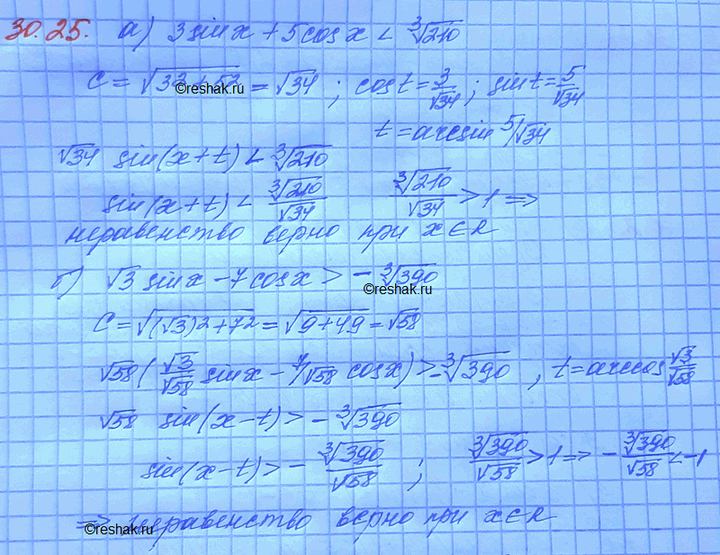 30.25. а) 3 sin x + 5 cos x < ∛210
C = √(32 + 52) = √34 ; cos t = 3/√34 ; sin t = 5/√34
©reshak.ru
t = arcsin 5/√34
√34 sin(x+t) < ∛210
sin(x+t) < ∛210/√34 ∛210/√34 > 1 ⇒
неравенство верно при x∈R
б) √3 sin x − 7 cos x > − ∛390
©reshak.ru
C = √((√3)2 + 72) = √(9+49) = √58
√58 (√3/√58 sin x − 7/√58 cos x) > −∛390 , t = arccos √3/√58
√58 sin(x−t) > − ∛390
sin(x−t) > − ∛390/√58 ; ∛390/√58 > 1 ⇒ − ∛390/√58 < −1
⇒ неравенство верно при x∈R
©reshak.ru